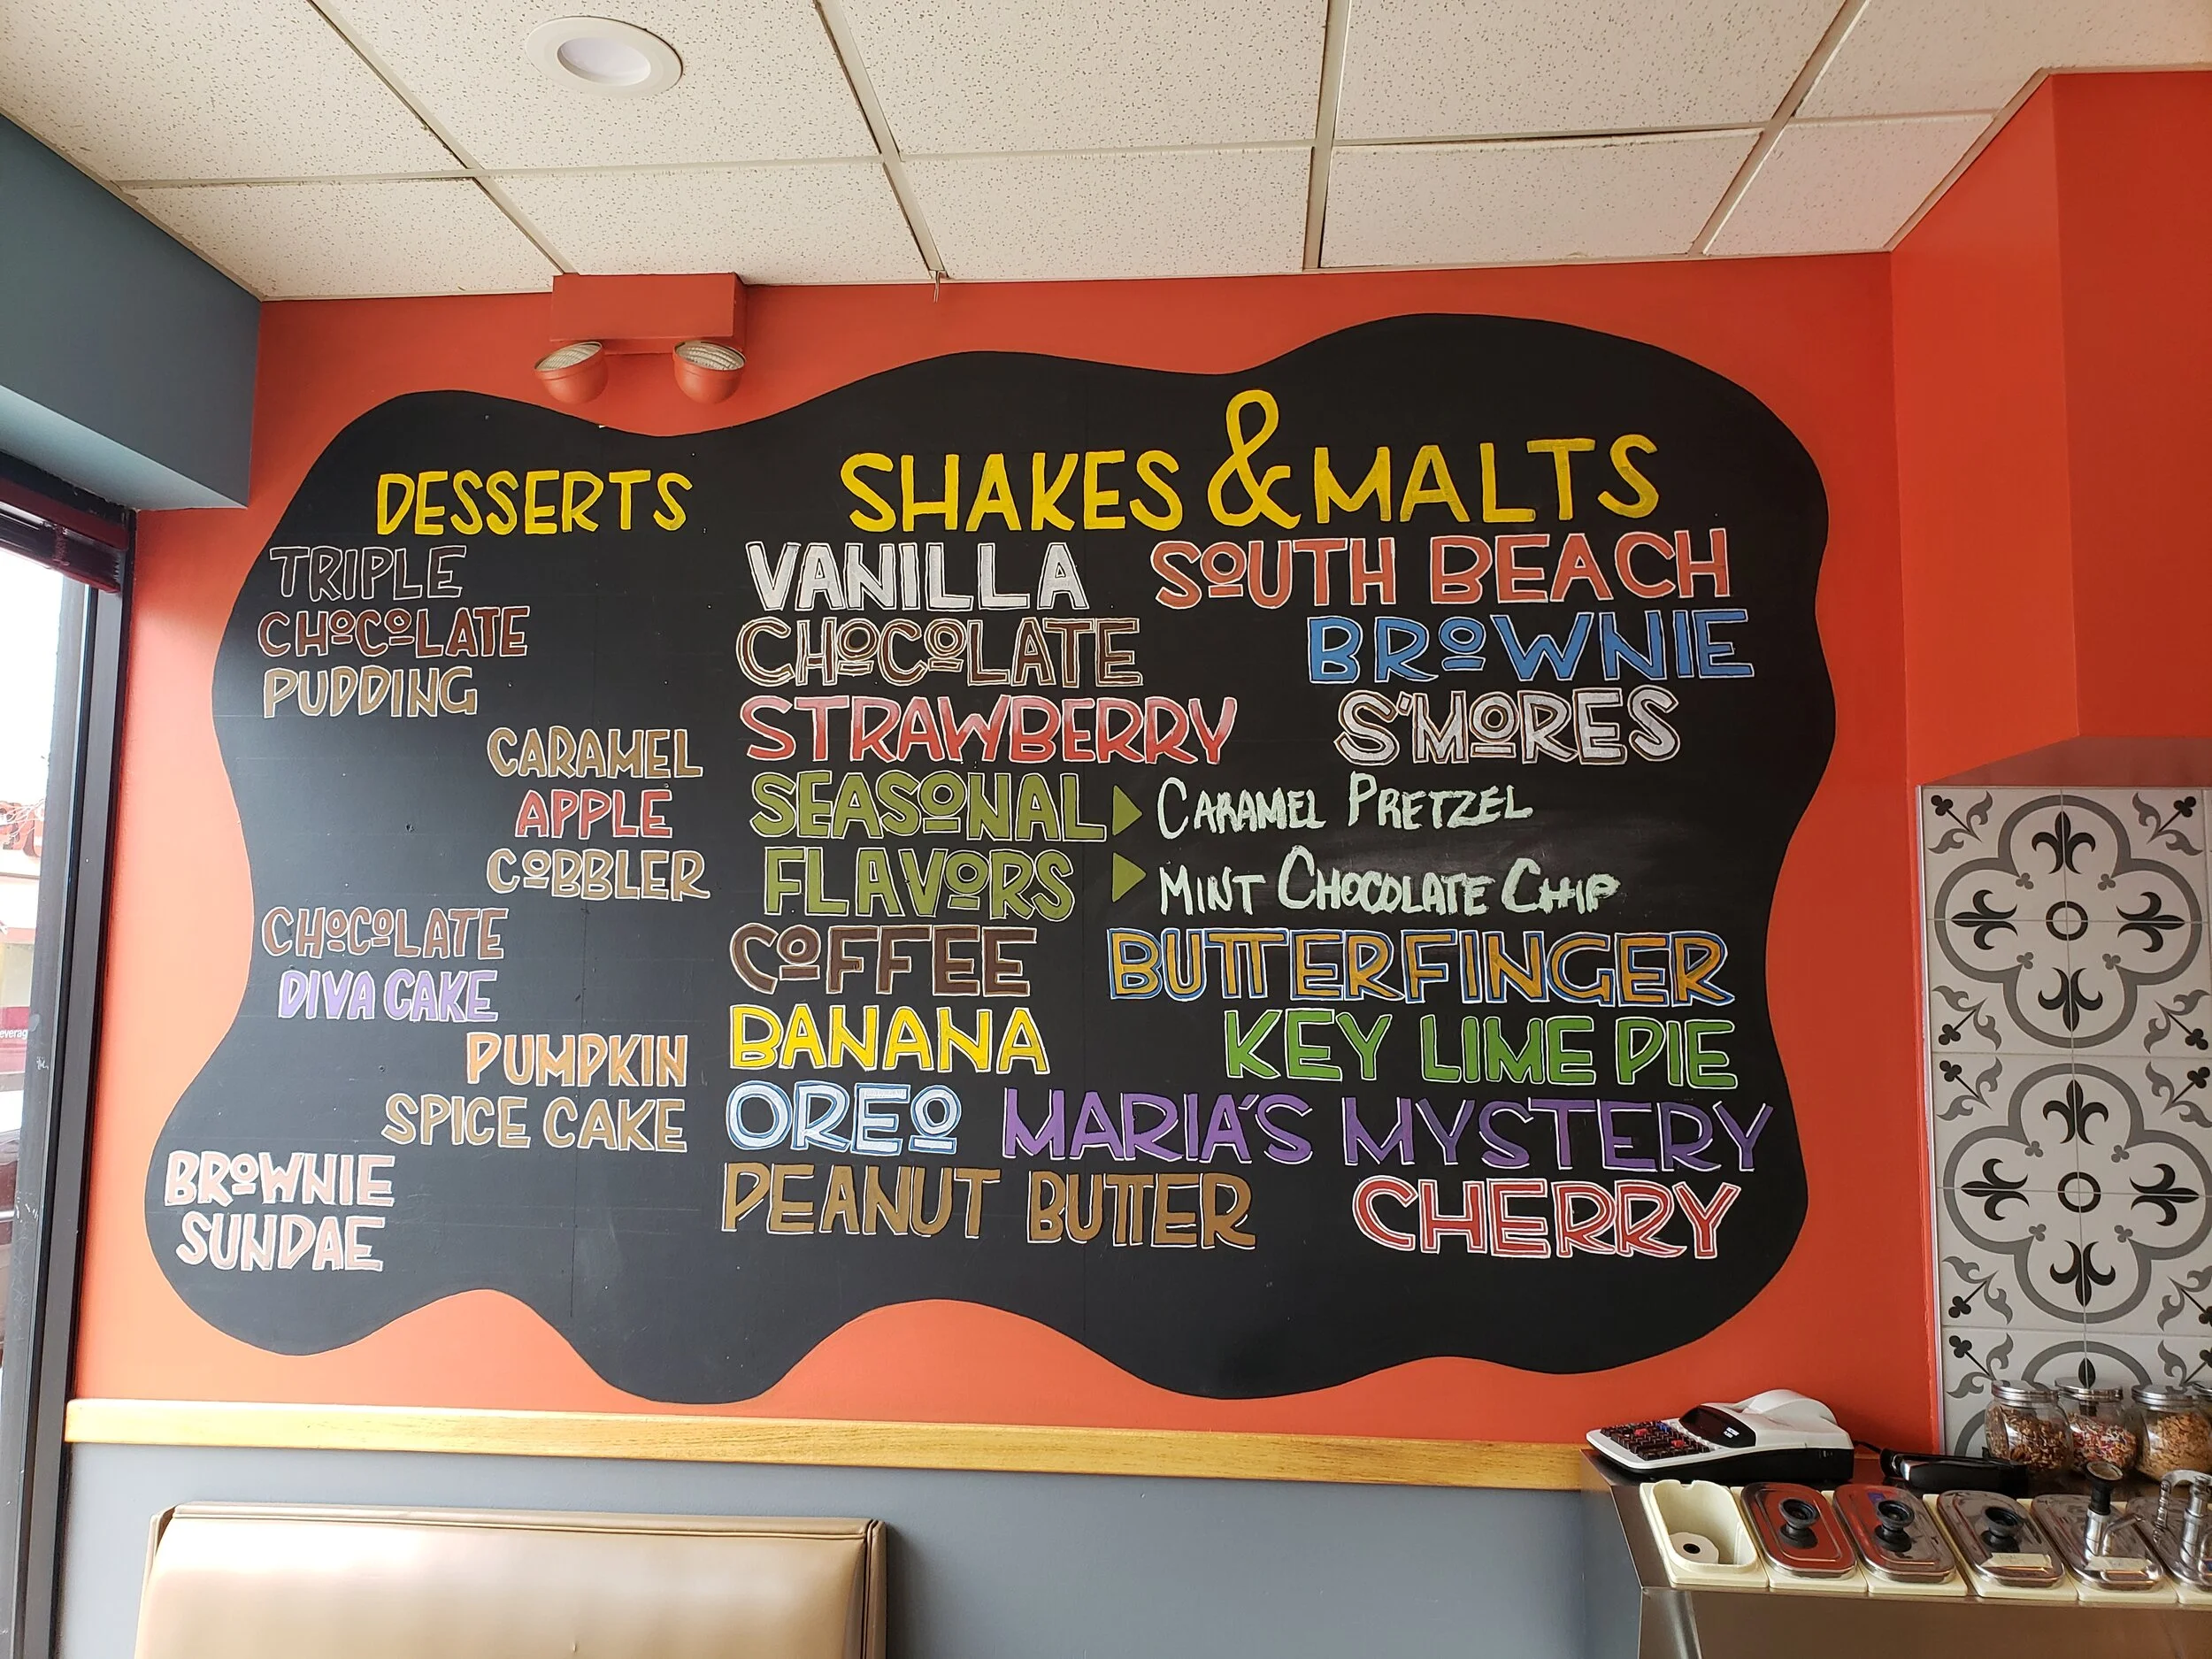 DESSERTS
TRIPLE
CHOCOLATE
PUDDING
CARAMEL
APPLE
COBBLER
CHOCOLATE
DIVA CAKE
PUMPKIN
SPICE CAKE
BROWNIE
SUNDAE
SHAKES & MALTS
VANILLA
SOUTH BEACH
CHOCOLATE
BROWNIE
STRAWBERRY
S'MORES
SEASONAL
FLAVORS
CARAMEL PRETZEL
MINT CHOCOLATE CHIP
COFFEE
BUTTERFINGER
BANANA
KEY LIME PIE
OREO
MARIA'S MYSTERY
PEANUT BUTTER
CHERRY